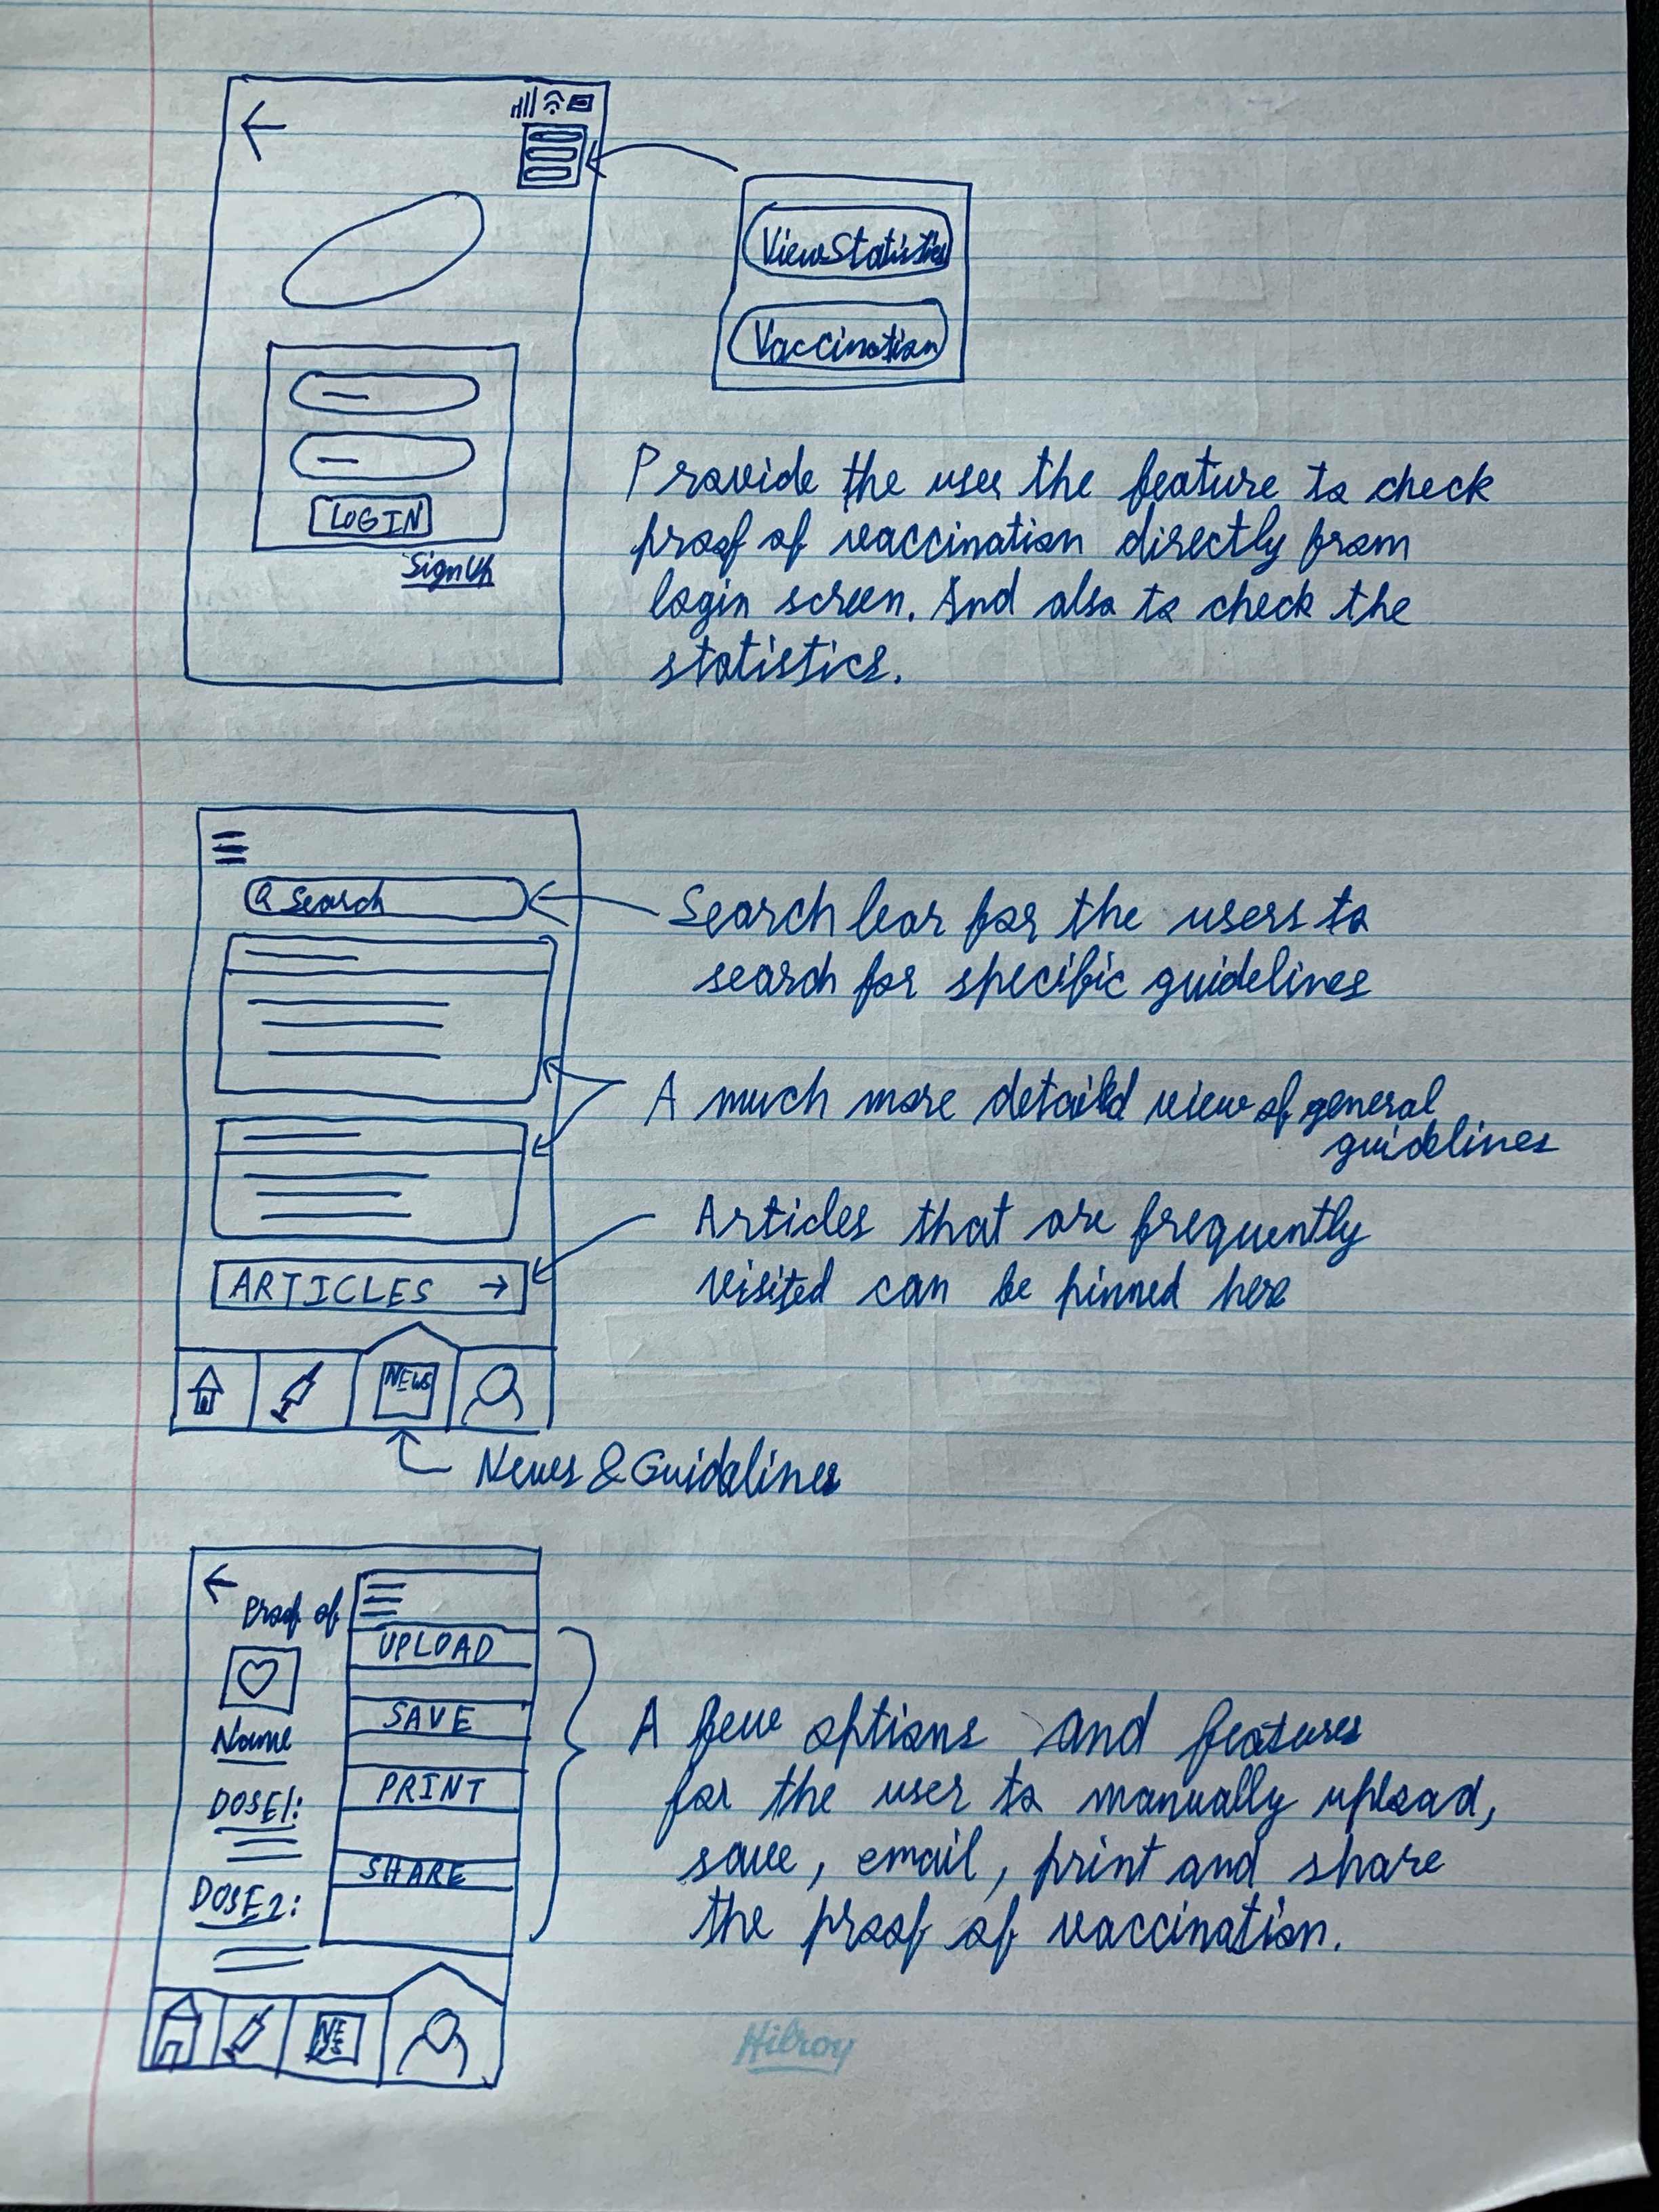 View Statistics
Vaccination
LOGIN
SignUp
Provide the user the feature to check
proof of vaccination directly from
login screen. And also to check the
statistics.
Search
Search bar for the users to
search for specific guidelines
A much more detaild view of general
guidelines
Articles that are frequently
visited can be pinned here
ARTICLES →
NEWS
News & Guidelines
Proof of
UPLOAD
SAVE
Name
PRINT
DOSE1:
SHARE
DOSE2:
A few options and features
for the user to manually upload,
save, email, print and share
the proof of vaccination.
NE
WS
Hilroy